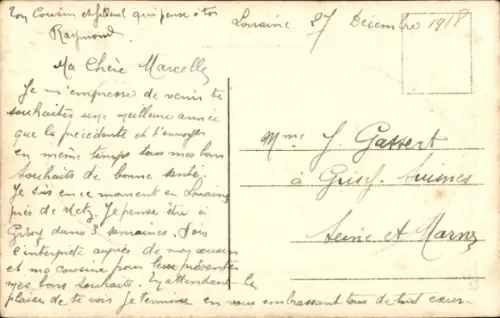 Ton Cousin et filleul qui pense à toi
Raymond.
Lorraine 27 Décembre 1918
Ma Chère Marcelle
Je m'empresse de venir te
souhaiter une meilleure année
que la précédente et t'envoyer
en même temps tous mes bons
souhaits de bonne santé.
Je suis en ce moment en Lorraine
près de Metz. Je pense être à
Grisy dans 3 semaines. Sois
l'interprète auprès de mon cousin
et ma cousine pour leur présenter
mes bons souhaits. En attendant le
plaisir de te voir je termine en vous embrassant tous de tout cœur
Mme J. Gassert
à Grisy-Suisnes
Seine et Marne